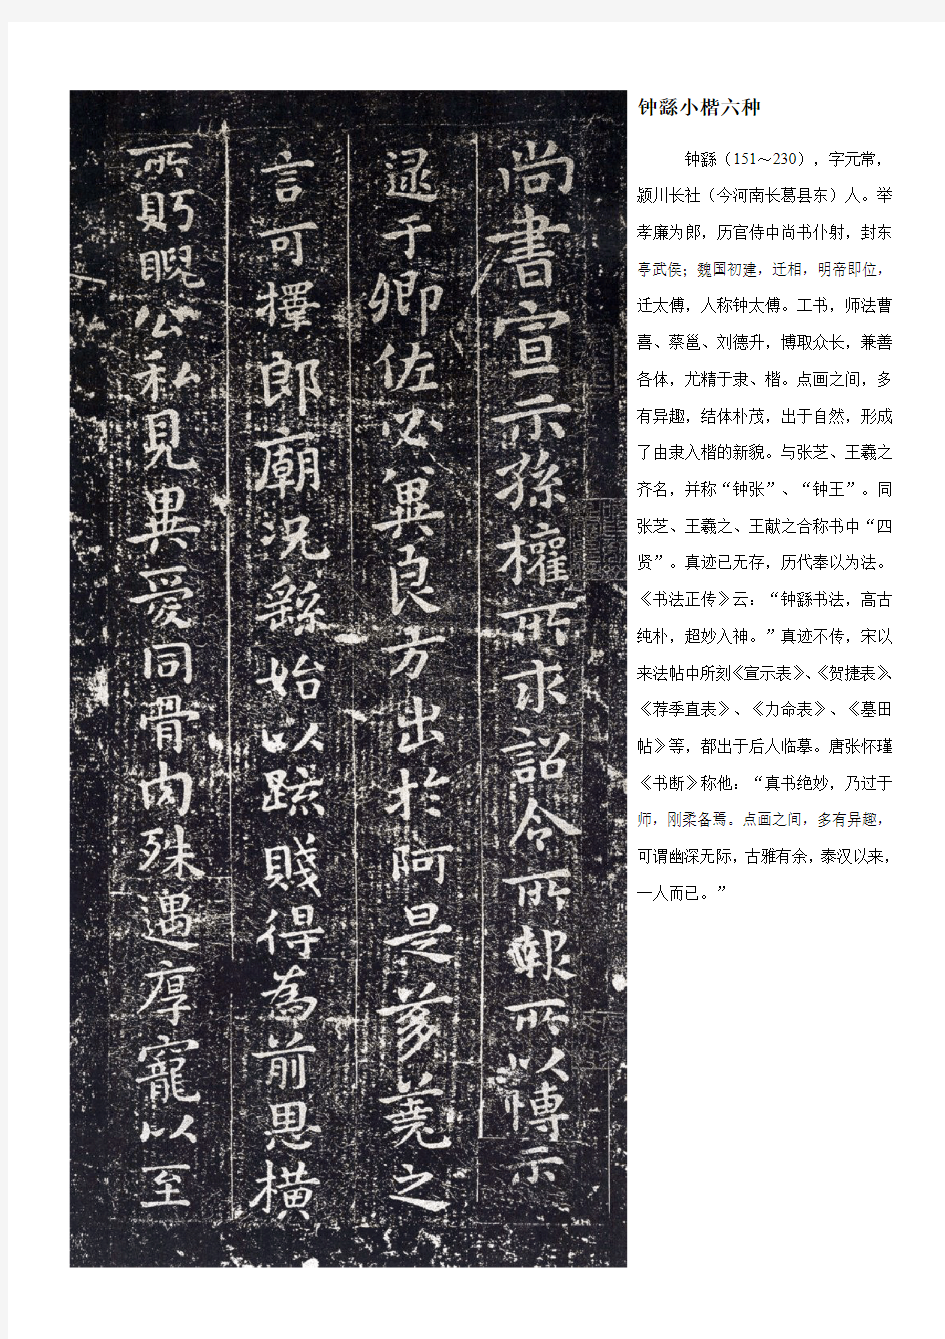 钟繇小楷六种
钟繇（151～230），字元常，
颍川长社（今河南长葛县东）人。举
孝廉为郎，历官侍中尚书仆射，封东
亭武侯；魏国初建，迁相，明帝即位，
迁太傅，人称钟太傅。工书，师法曹
喜、蔡邕、刘德升，博取众长，兼善
各体，尤精于隶、楷。点画之间，多
有异趣，结体朴茂，出于自然，形成
了由隶入楷的新貌。与张芝、王羲之
齐名，并称“钟张”、“钟王”。同
张芝、王羲之、王献之合称书中“四
贤”。真迹已无存，历代奉以为法。
《书法正传》云：“钟繇书法，高古
纯朴，超妙入神。”真迹不传，宋以
来法帖中所刻《宣示表》、《贺捷表》、
《荐季直表》、《力命表》、《墓田
帖》等，都出于后人临摹。唐张怀瑾
《书断》称他：“真书绝妙，乃过于
师，刚柔备焉。点画之间，多有异趣，
可谓幽深无际，古雅有余，泰汉以来，
一人而已。”
尚書宣示孫權所求詔令所報所以博示
逮于卿佐必冀良方出於阿是芻蕘之
言可擇郎廟況繇始以踈賤得為前恩橫
所眄睨公私見異愛同骨肉殊遇厚寵以至